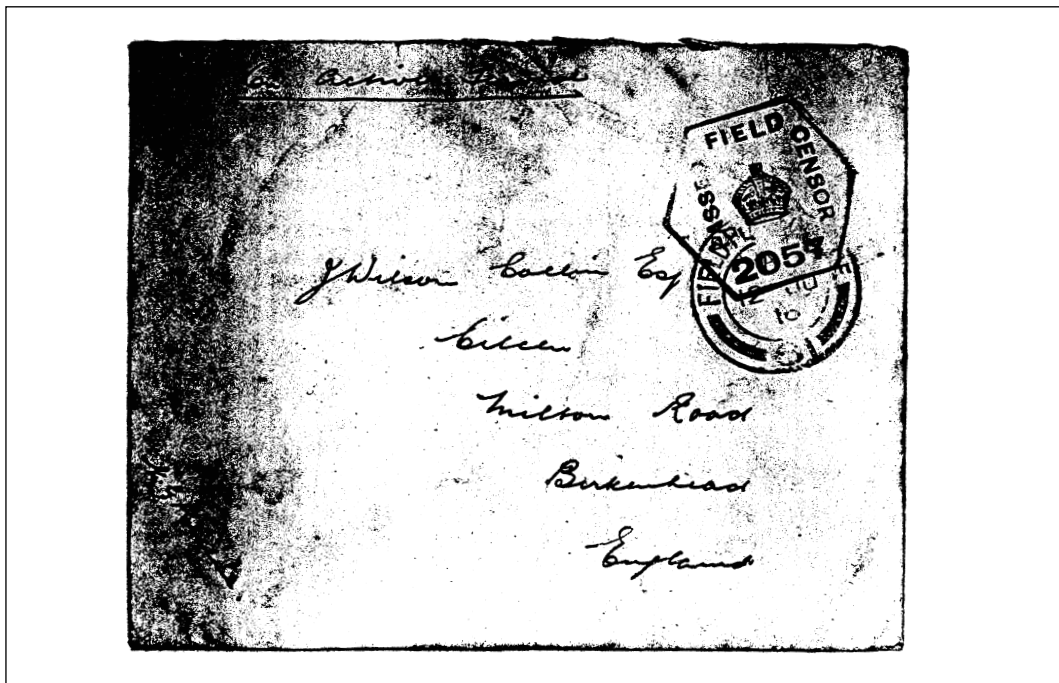 On Active Service
PASSED FIELD CENSOR
2057
FIELD
12 JU
16
J Wilson Esq
Eileen
Milton Road
Birkenhead
England